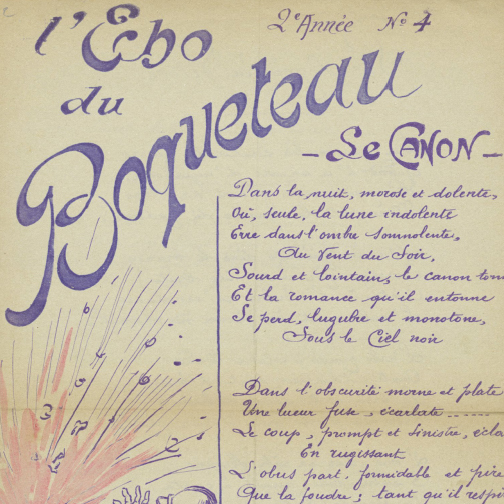 l'Echo
du
Boqueteau
2e Année No 4
- Le CANON -
Dans la nuit, morose et dolente,
Où, seule, la lune indolente
Erre dans l'ombre somnolente,
Au Vent du Soir,
Sourd et lointain, le canon
Et la romance qu'il entonne
Se perd, lugubre et monotone,
Sous le Ciel noir
Dans l'obscurité morne et plate
Une lueur fuse, écarlate ......
Le coup, prompt et sinistre,
En rugissant
L'obus part, formidable et pire
Que la foudre ; tant qu'il